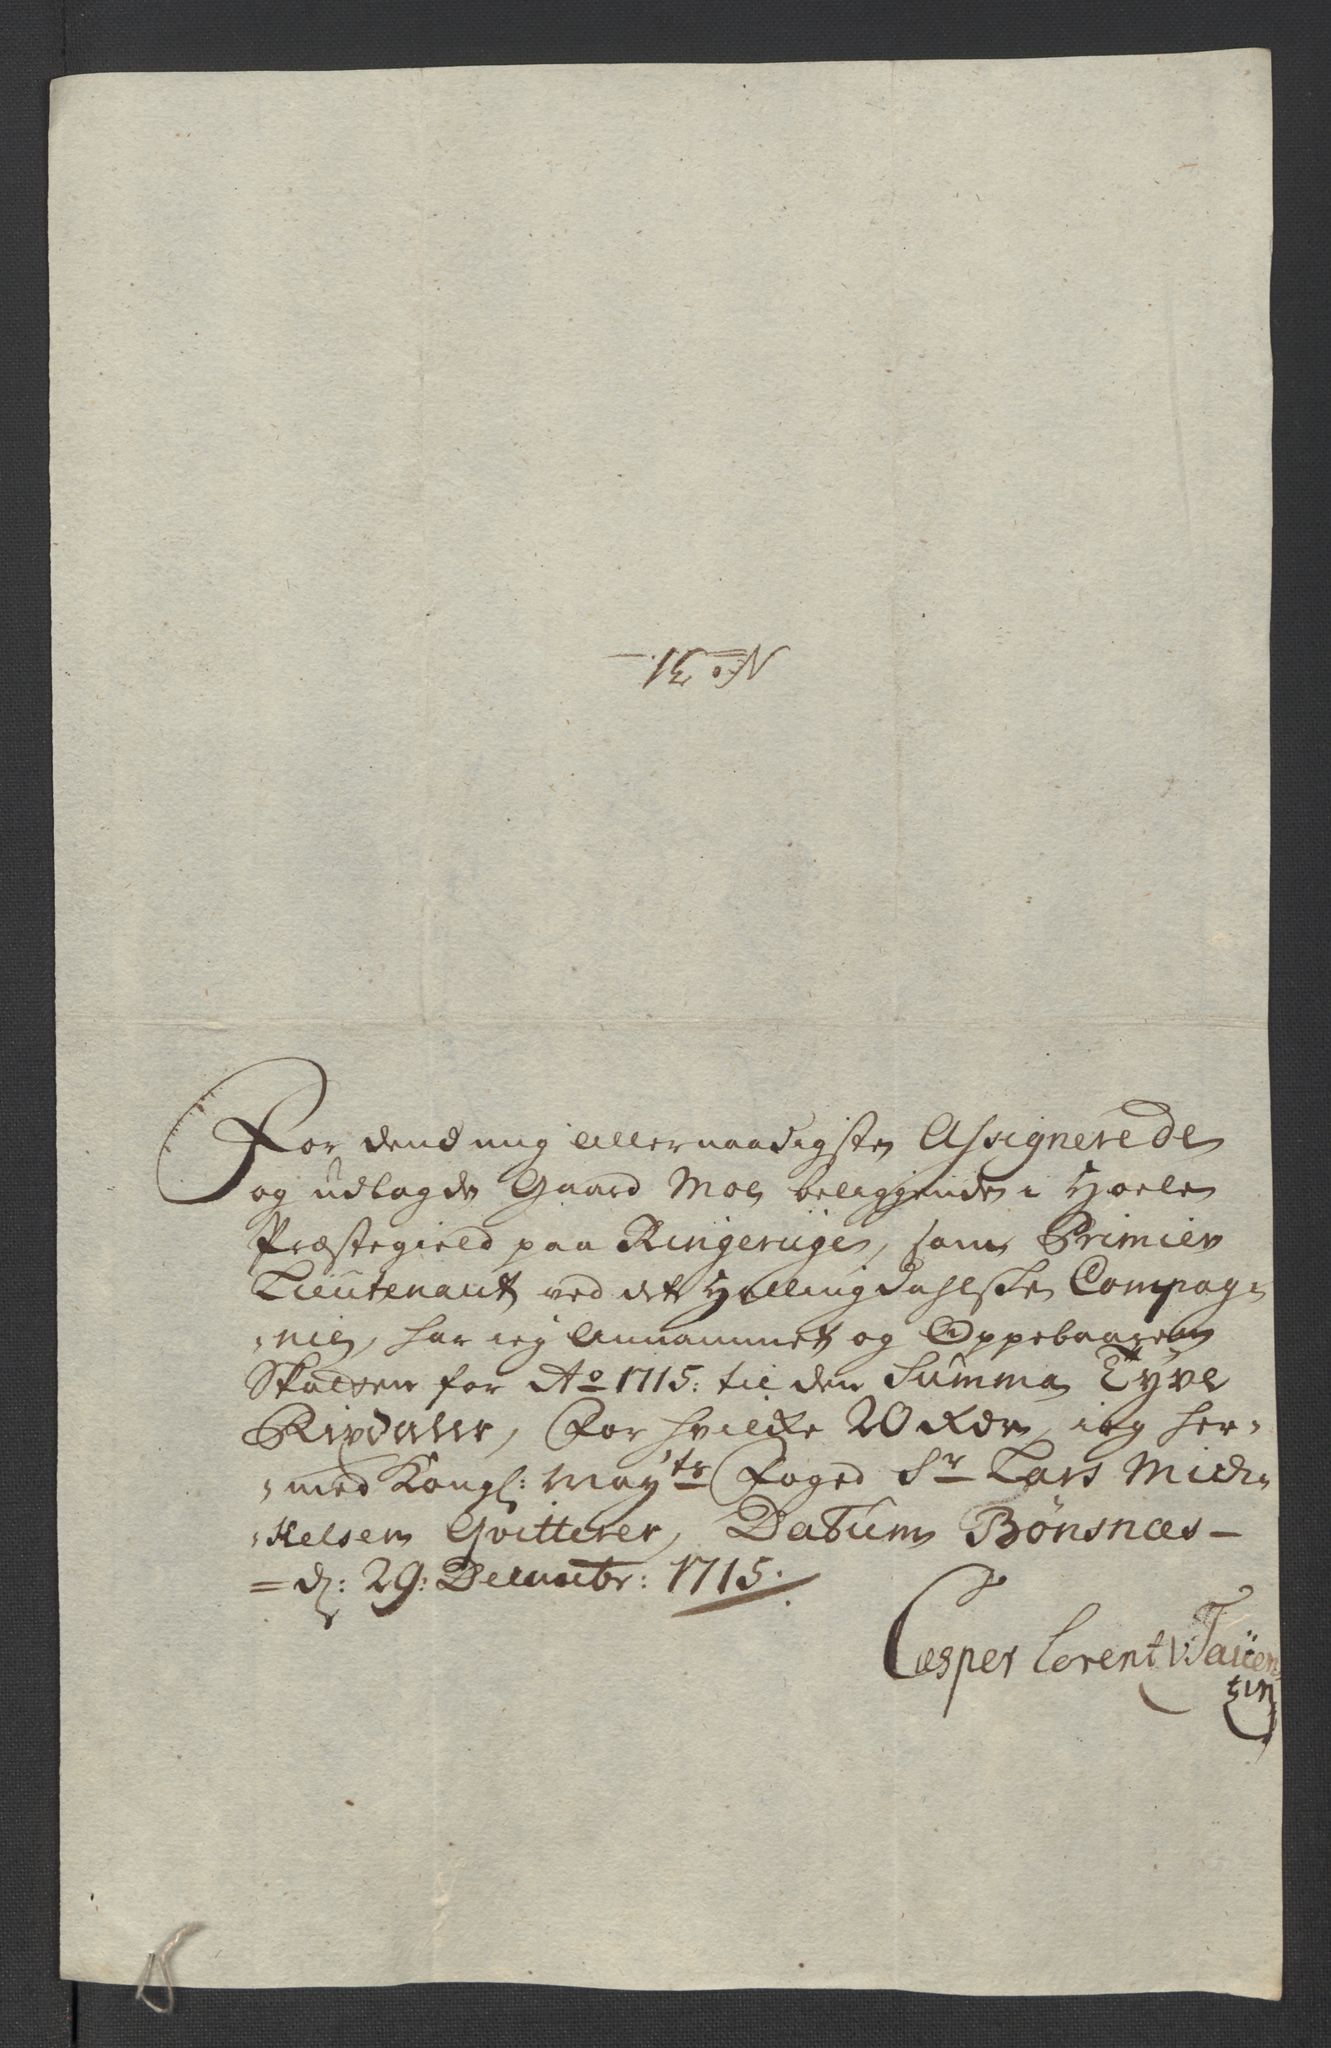 No 31.
For dend mig allernaadigste Assignerede
og udlagde Gaard Moe beliggende i Hoele
Præstegield paa Ringeruge, som Primier
Lieutenant ved det Hallingdahlske Compag-
-nie, har ieg Annammet og Oppebaaren
Skatten for Ao 1715: til den Summa Tyve
Rixdaler, For hvilke 20 Rdr, ieg her-
-med Kongl: Mayts Foged Sr Lars Mich-
-Kelsen Qvitterer, Datum Bönsnæs -
= d: 29: Decembr: 1715.
Casper Lorentz v: Tauen
tzin